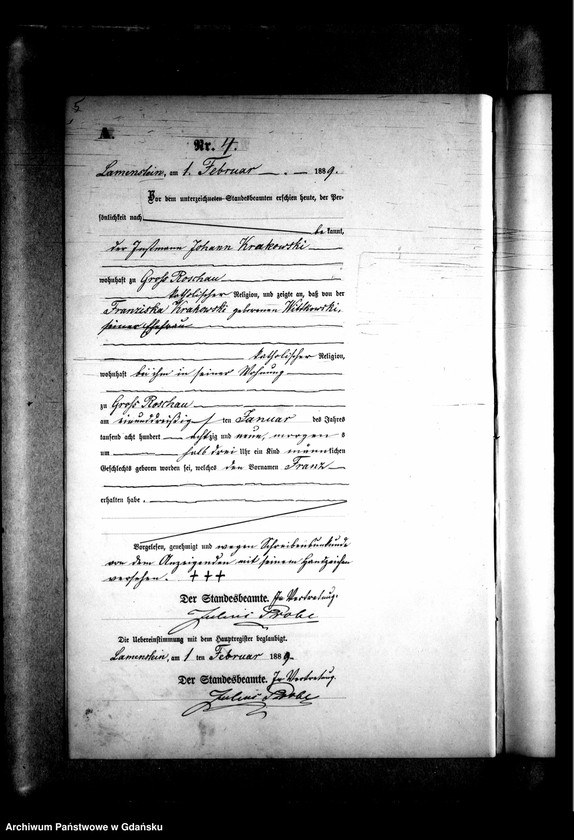 5
A.
Nr. 4.
Lamenstein, am 1. Februar 1889.
Vor dem unterzeichneten Standesbeamten erschien heute, der Per-
sönlichkeit nach
be kannt,
der Instmann Johann Krakowski
wohnhaft zu Groß Roschau
katholischer Religion, und zeigte an, daß von der
Franziska Krakowski geborenen Wittkowski,
seiner Ehefrau
katholischer Religion,
wohnhaft bei ihm in seiner Wohnung
zu Groß Roschau
am einunddreißig ten Januar des Jahres
tausend acht hundert achtzig und neun, morgens
um halb drei Uhr ein Kind männlichen
Geschlechts geboren worden sei, welches den Vornamen Franz
erhalten habe.
Vorgelesen, genehmigt und wegen Schreibensunkunde
von dem Anzeigenden mit seinem Handzeichen
versehen. +++
Der Standesbeamte. In Vertretung.
Julius Probe
Die Uebereinstimmung mit dem Hauptregister beglaubigt.
Lamenstein, am 1 ten Februar 1889.
Der Standesbeamte. In Vertretung.
Julius Probe
Archiwum Państwowe w Gdańsku